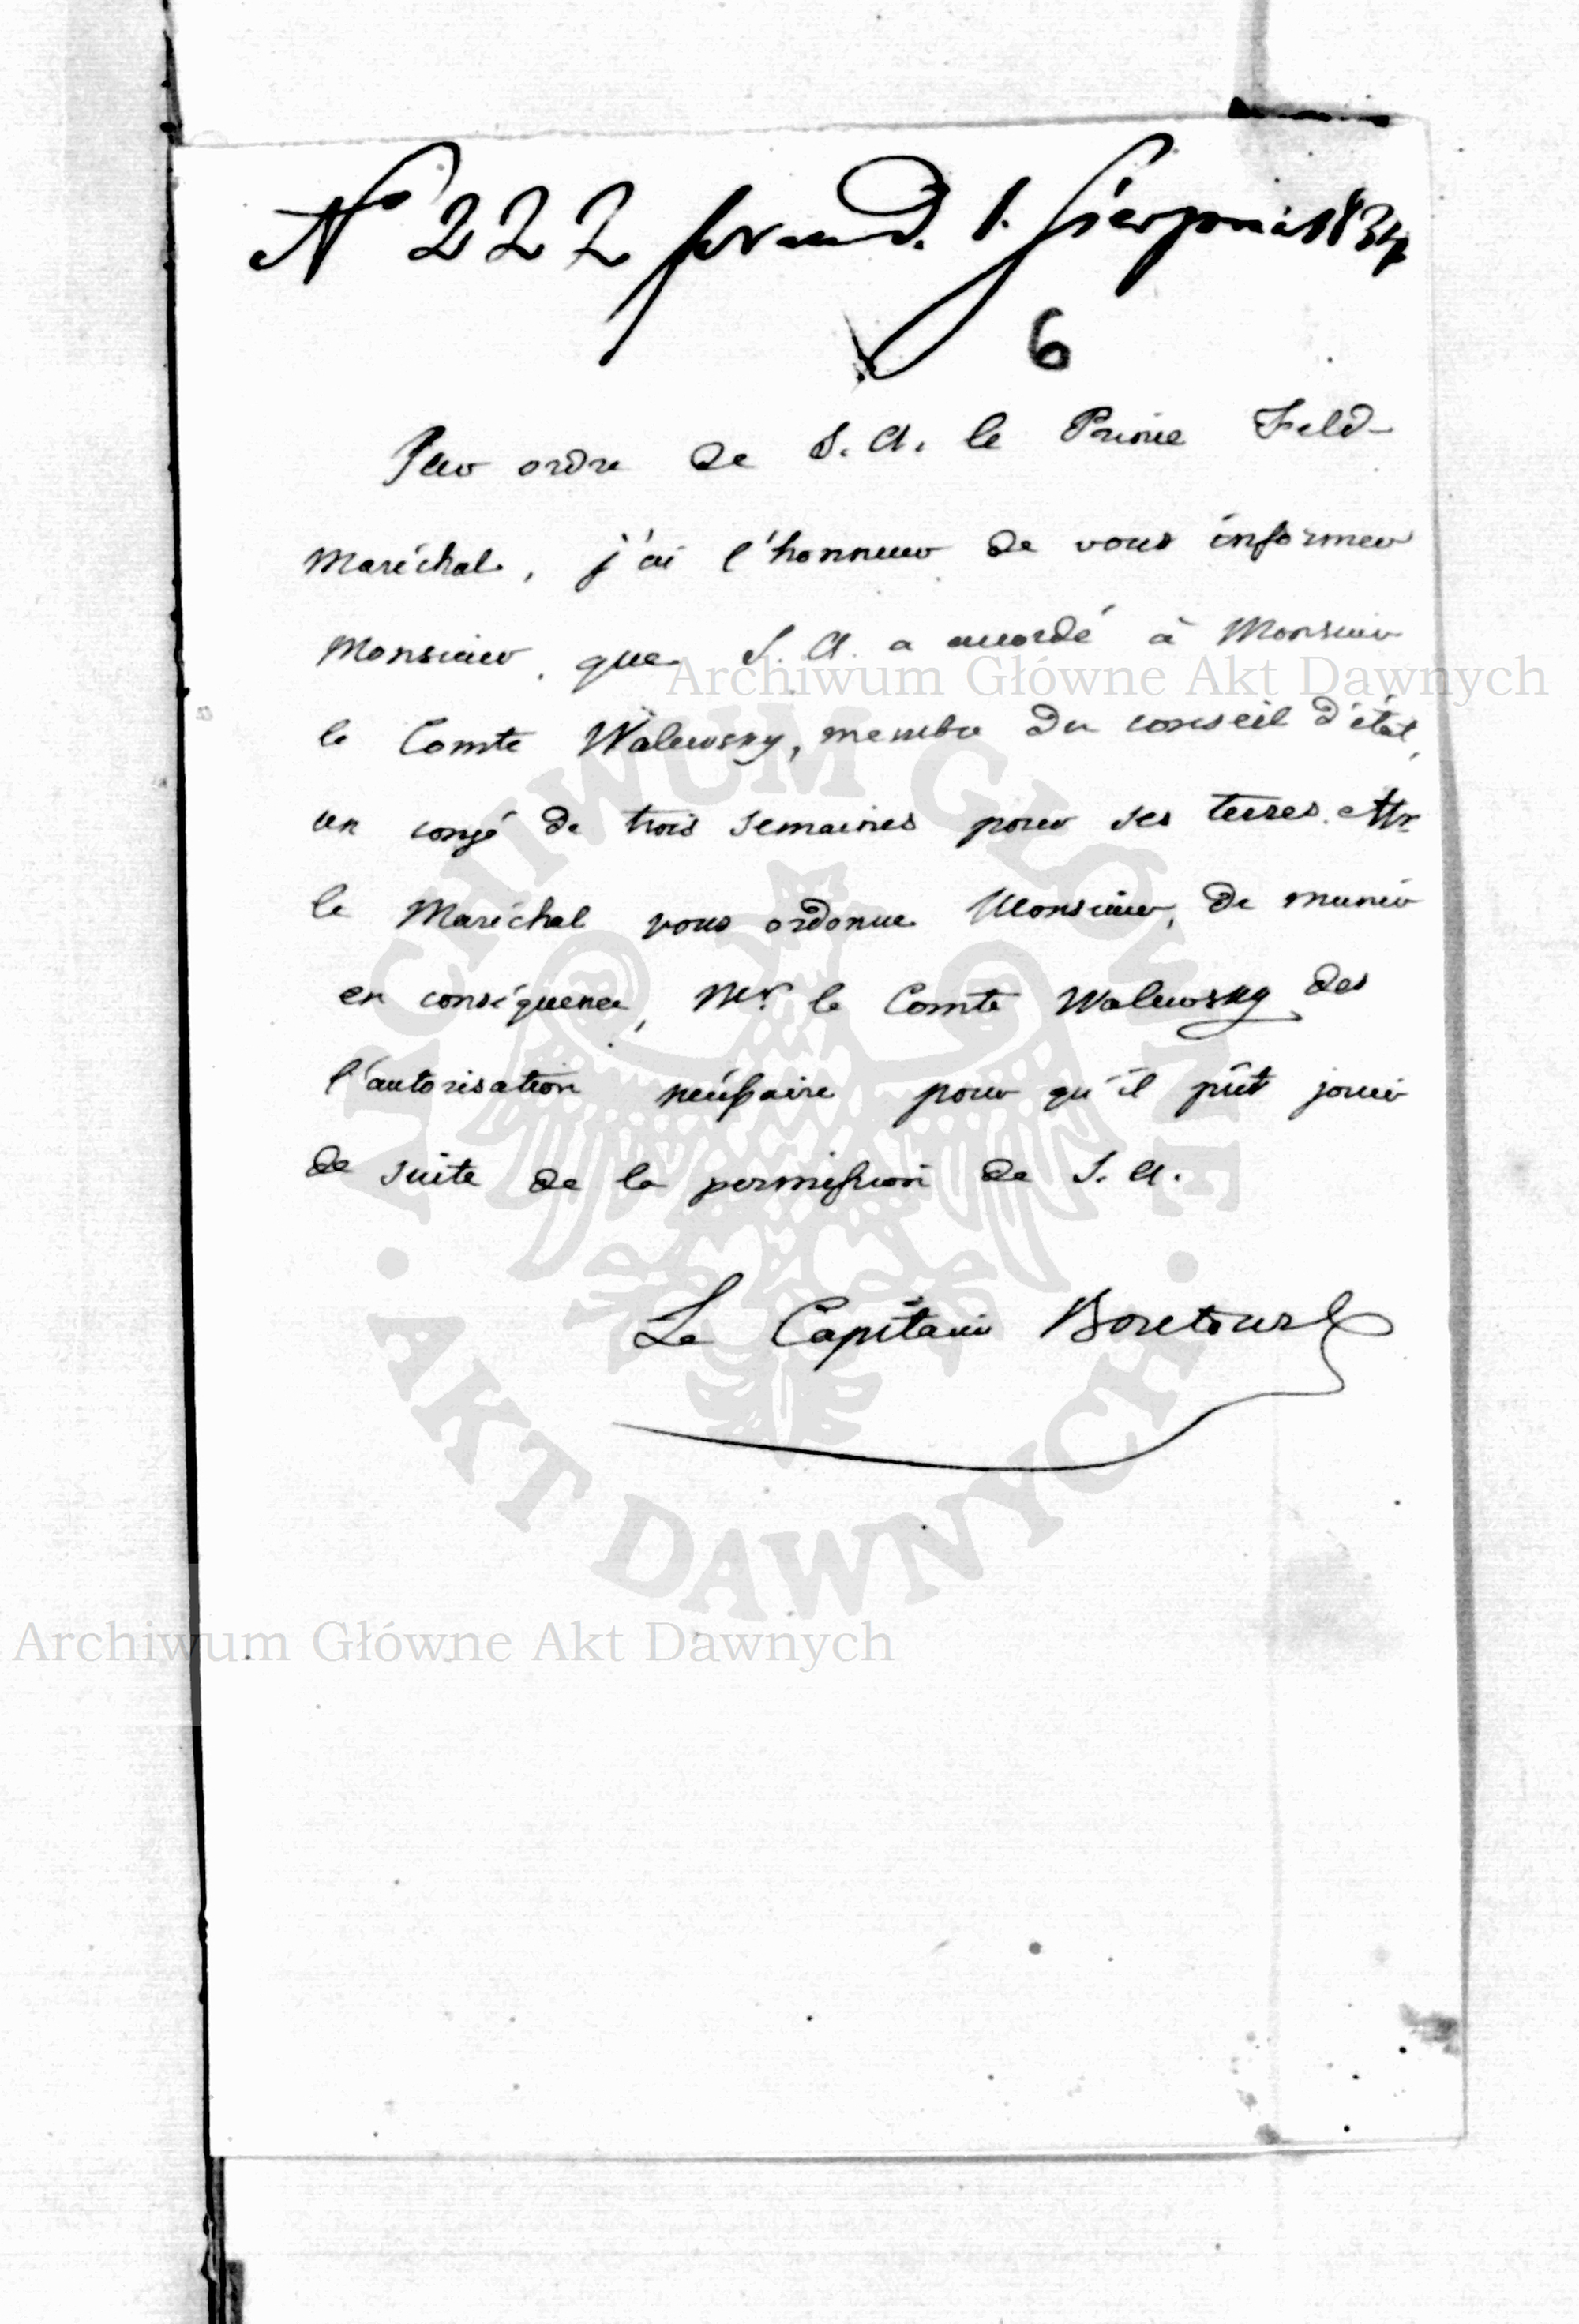 N° 222 praes. d. 1. Sierpnia 1834
6
Par ordre de S. A. le Prince Feld-
Maréchal, j'ai l'honneur de vous informer
Monsieur, que S. A. a accordé à Monsieur
le Comte Walewsky, membre du conseil d'état,
un congé de trois semaines pour ses terres. Mr
le Maréchal vous ordonne Monsieur, de munir
en conséquence, Mr. le Comte Walewsky des
l'autorisation nécessaire pour qu'il pût jouir
de suite de la permission de S. A.
Le Capitaine Boutourl
Archiwum Główne Akt Dawnych
ARCHIWUM GŁÓWNE · AKT DAWNYCH ·
Archiwum Główne Akt Dawnych